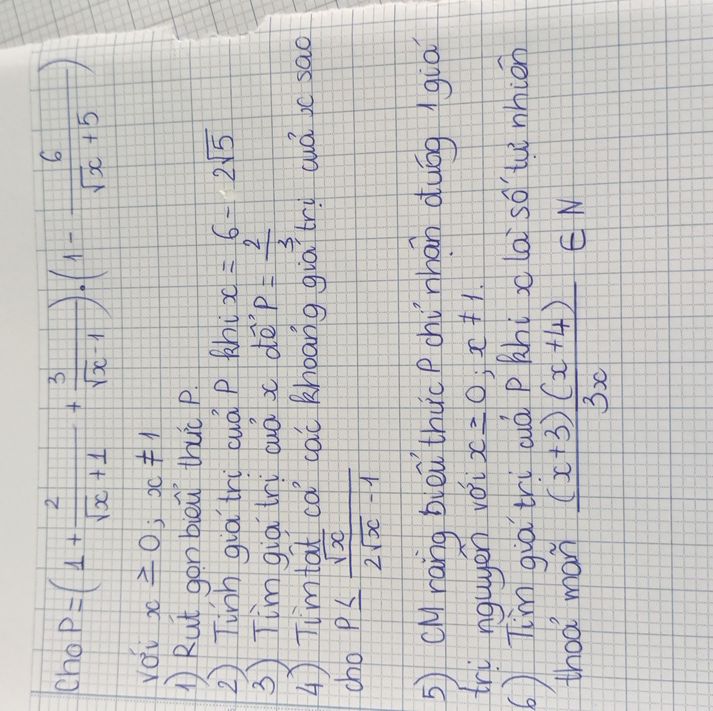 Cho P = (1 + 2/(√x + 1) + 3/(√x - 1)) . (1 - 6/(√x + 5))
với x ≥ 0; x ≠ 1
1) Rút gọn biểu thức P.
2) Tính giá trị của P khi x = 6 - 2√5
3) Tìm giá trị của x để P = 2/3
4) Tìm tất cả các khoảng giá trị của x sao
cho P ≤ √x/(2√x - 1)
5) CM rằng biểu thức P chỉ nhận đúng 1 giá
trị nguyên với x ≥ 0; x ≠ 1.
6) Tìm giá trị của P khi x là số tự nhiên
thoả mãn (x+3)(x+4)/3x ∈ N